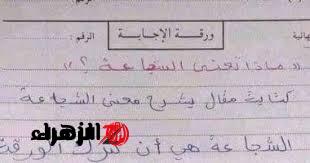 هائية
ورقة الإجابة
الرقم :
الرقم :
« ماذا تعني الشجاعة ؟ »
كتابة مقال يشرح معنى الشجاعة
الزهراء
الشجاعة هي أن تترك الورقة